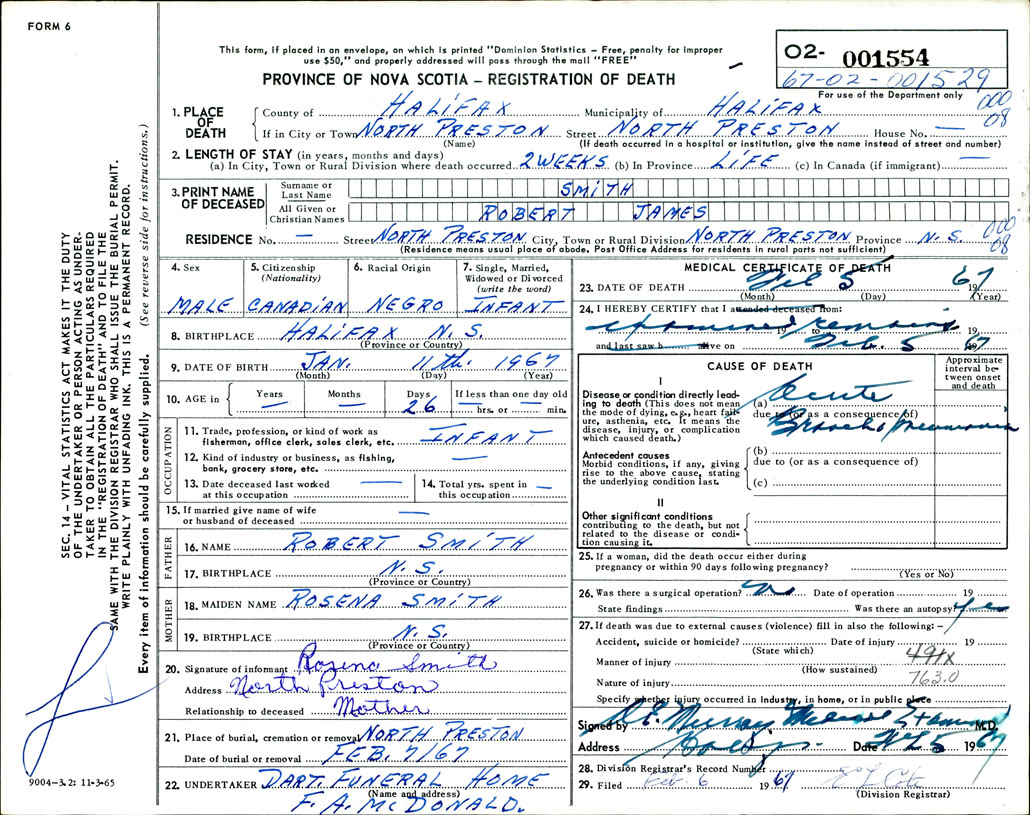 FORM 6
This form, if placed in an envelope, on which is printed "Dominion Statistics - Free, penalty for improper
use $50," and properly addressed will pass through the mail "FREE"
PROVINCE OF NOVA SCOTIA - REGISTRATION OF DEATH
02- 001554
67-02-001529
For use of the Department only
000
08
1. PLACE OF DEATH
County of HALIFAX Municipality of HALIFAX
If in City or Town NORTH PRESTON Street NORTH PRESTON House No. —
(Name) (If death occurred in a hospital or institution, give the name instead of street and number)
2. LENGTH OF STAY (in years, months and days)
(a) In City, Town or Rural Division where death occurred 2 WEEKS (b) In Province LIFE (c) In Canada (if immigrant) —
3. PRINT NAME OF DECEASED
Surname or Last Name SMITH
All Given or Christian Names ROBERT JAMES
RESIDENCE No. — Street NORTH PRESTON City, Town or Rural Division NORTH PRESTON Province N.S.
000
08
(Residence means usual place of abode. Post Office Address for residents in rural parts not sufficient)
4. Sex
MALE
5. Citizenship (Nationality)
CANADIAN
6. Racial Origin
NEGRO
7. Single, Married, Widowed or Divorced (write the word)
INFANT
8. BIRTHPLACE HALIFAX N.S.
(Province or Country)
9. DATE OF BIRTH JAN. 11th. 1967
(Month) (Day) (Year)
10. AGE in Years — Months — Days 26 If less than one day old — hrs. or — min.
OCCUPATION
11. Trade, profession, or kind of work as fisherman, office clerk, sales clerk, etc. INFANT
12. Kind of industry or business, as fishing, bank, grocery store, etc. —
13. Date deceased last worked at this occupation —
14. Total yrs. spent in this occupation —
15. If married give name of wife or husband of deceased —
FATHER
16. NAME ROBERT SMITH
17. BIRTHPLACE N.S.
(Province or Country)
MOTHER
18. MAIDEN NAME ROSENA SMITH
19. BIRTHPLACE N.S.
(Province or Country)
20. Signature of informant Rosena Smith
Address North Preston
Relationship to deceased Mother
21. Place of burial, cremation or removal NORTH PRESTON
Date of burial or removal FEB. 7/67
22. UNDERTAKER DART. FUNERAL HOME
(Name and address)
F. A. McDONALD.
MEDICAL CERTIFICATE OF DEATH
23. DATE OF DEATH Feb 5 1967
(Month) (Day) (Year)
24. I HEREBY CERTIFY that I attended deceased from:
examined remains 19 to 19
and last saw h alive on Feb. 5 1967
CAUSE OF DEATH
Approximate interval between onset and death
I
Disease or condition directly leading to death (This does not mean the mode of dying, e.g., heart failure, asthenia, etc. It means the disease, injury, or complication which caused death.)
(a) Acute
due to (or as a consequence of)
Broncho pneumonia
Antecedent causes
Morbid conditions, if any, giving rise to the above cause, stating the underlying condition last.
(b)
due to (or as a consequence of)
(c)
II
Other significant conditions
contributing to the death, but not related to the disease or condition causing it.
25. If a woman, did the death occur either during pregnancy or within 90 days following pregnancy?
(Yes or No)
26. Was there a surgical operation? No Date of operation 19
State findings Was there an autopsy? Yes
27. If death was due to external causes (violence) fill in also the following: -
Accident, suicide or homicide? Date of injury 19
(State which)
Manner of injury 491X
(How sustained)
Nature of injury 763.0
Specify whether injury occurred in Industry, in home, or in public place
Signed by Murray Medical Examiner M.D.
Address Date Feb 5 1967
28. Division Registrar's Record Number
29. Filed Feb 6 1967
(Division Registrar)
SEC. 14 - VITAL STATISTICS ACT MAKES IT THE DUTY
OF THE UNDERTAKER OR PERSON ACTING AS UNDER-
TAKER TO OBTAIN ALL THE PARTICULARS REQUIRED
IN THE "REGISTRATION OF DEATH" AND TO FILE THE
SAME WITH THE DIVISION REGISTRAR WHO SHALL ISSUE THE BURIAL PERMIT.
WRITE PLAINLY WITH UNFADING INK. THIS IS A PERMANENT RECORD.
Every item of information should be carefully supplied. (See reverse side for instructions.)
9004-3.2: 11-3-65